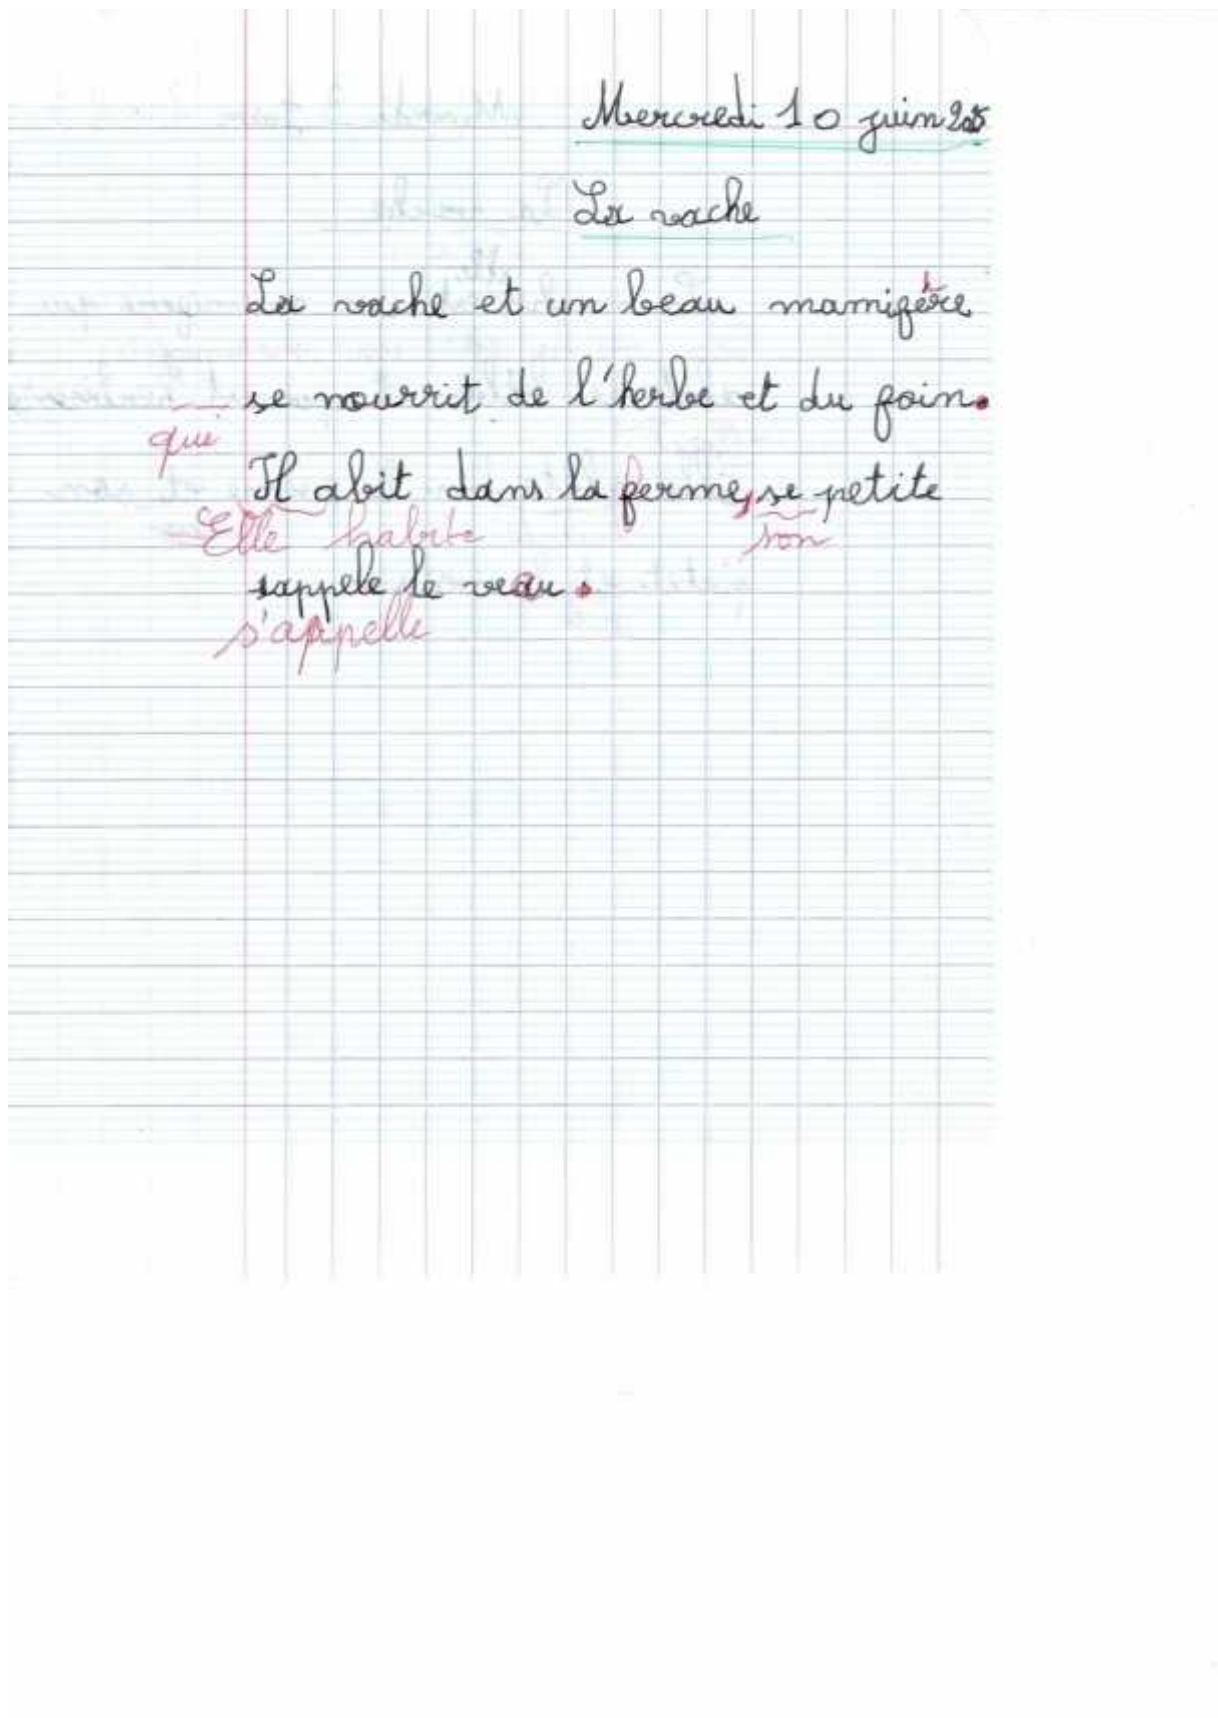 Mercredi 10 juin
La vache
La vache et un beau mamifère
se nourrit de l'herbe et du foin.
qui
Il abit dans la ferme, se petite
Elle habite son
sappele le veau.
s'appelle